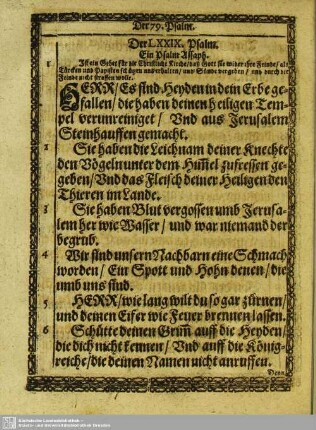 Der 79. Psalm.
Der LXXIX. Psalm.
Ein Psalm Assaph.
1 Ist ein Gebet für die Christliche Kirche / daß Gott sie wider ihre Feinde / als
Türcken und Papisten schützen und erhalten / und Sünde vergeben / und durch der
Feinde nicht straffen wolle.
HERR / Es sind Heyden in dein Erbe ge-
fallen / die haben deinen heiligen Tem-
pel verunreiniget / Vnd aus Jerusalem
Steinhauffen gemacht.
2 Sie haben die Leichnam deiner Knechte
den Vögeln unter dem Him̃el zufressen ge-
geben / Vnd das Fleisch deiner Heiligen den
Thieren im Lande.
3 Sie haben Blut vergossen umb Jerusa-
lem her wie Wasser / und war niemand der
begrub.
4 Wir sind unsern Nachbarn eine Schmach
worden / Ein Spott und Hohn denen / die
umb uns sind.
5 HERR / wie lang wilt du so gar zürnen /
und deinen Eifer wie Feuer brennen lassen.
6 Schütte deinen Grim̃ auff die Heyden /
die dich nicht kennen / Vnd auff die König-
reiche / die deinen Namen nicht anruffen.
Denn